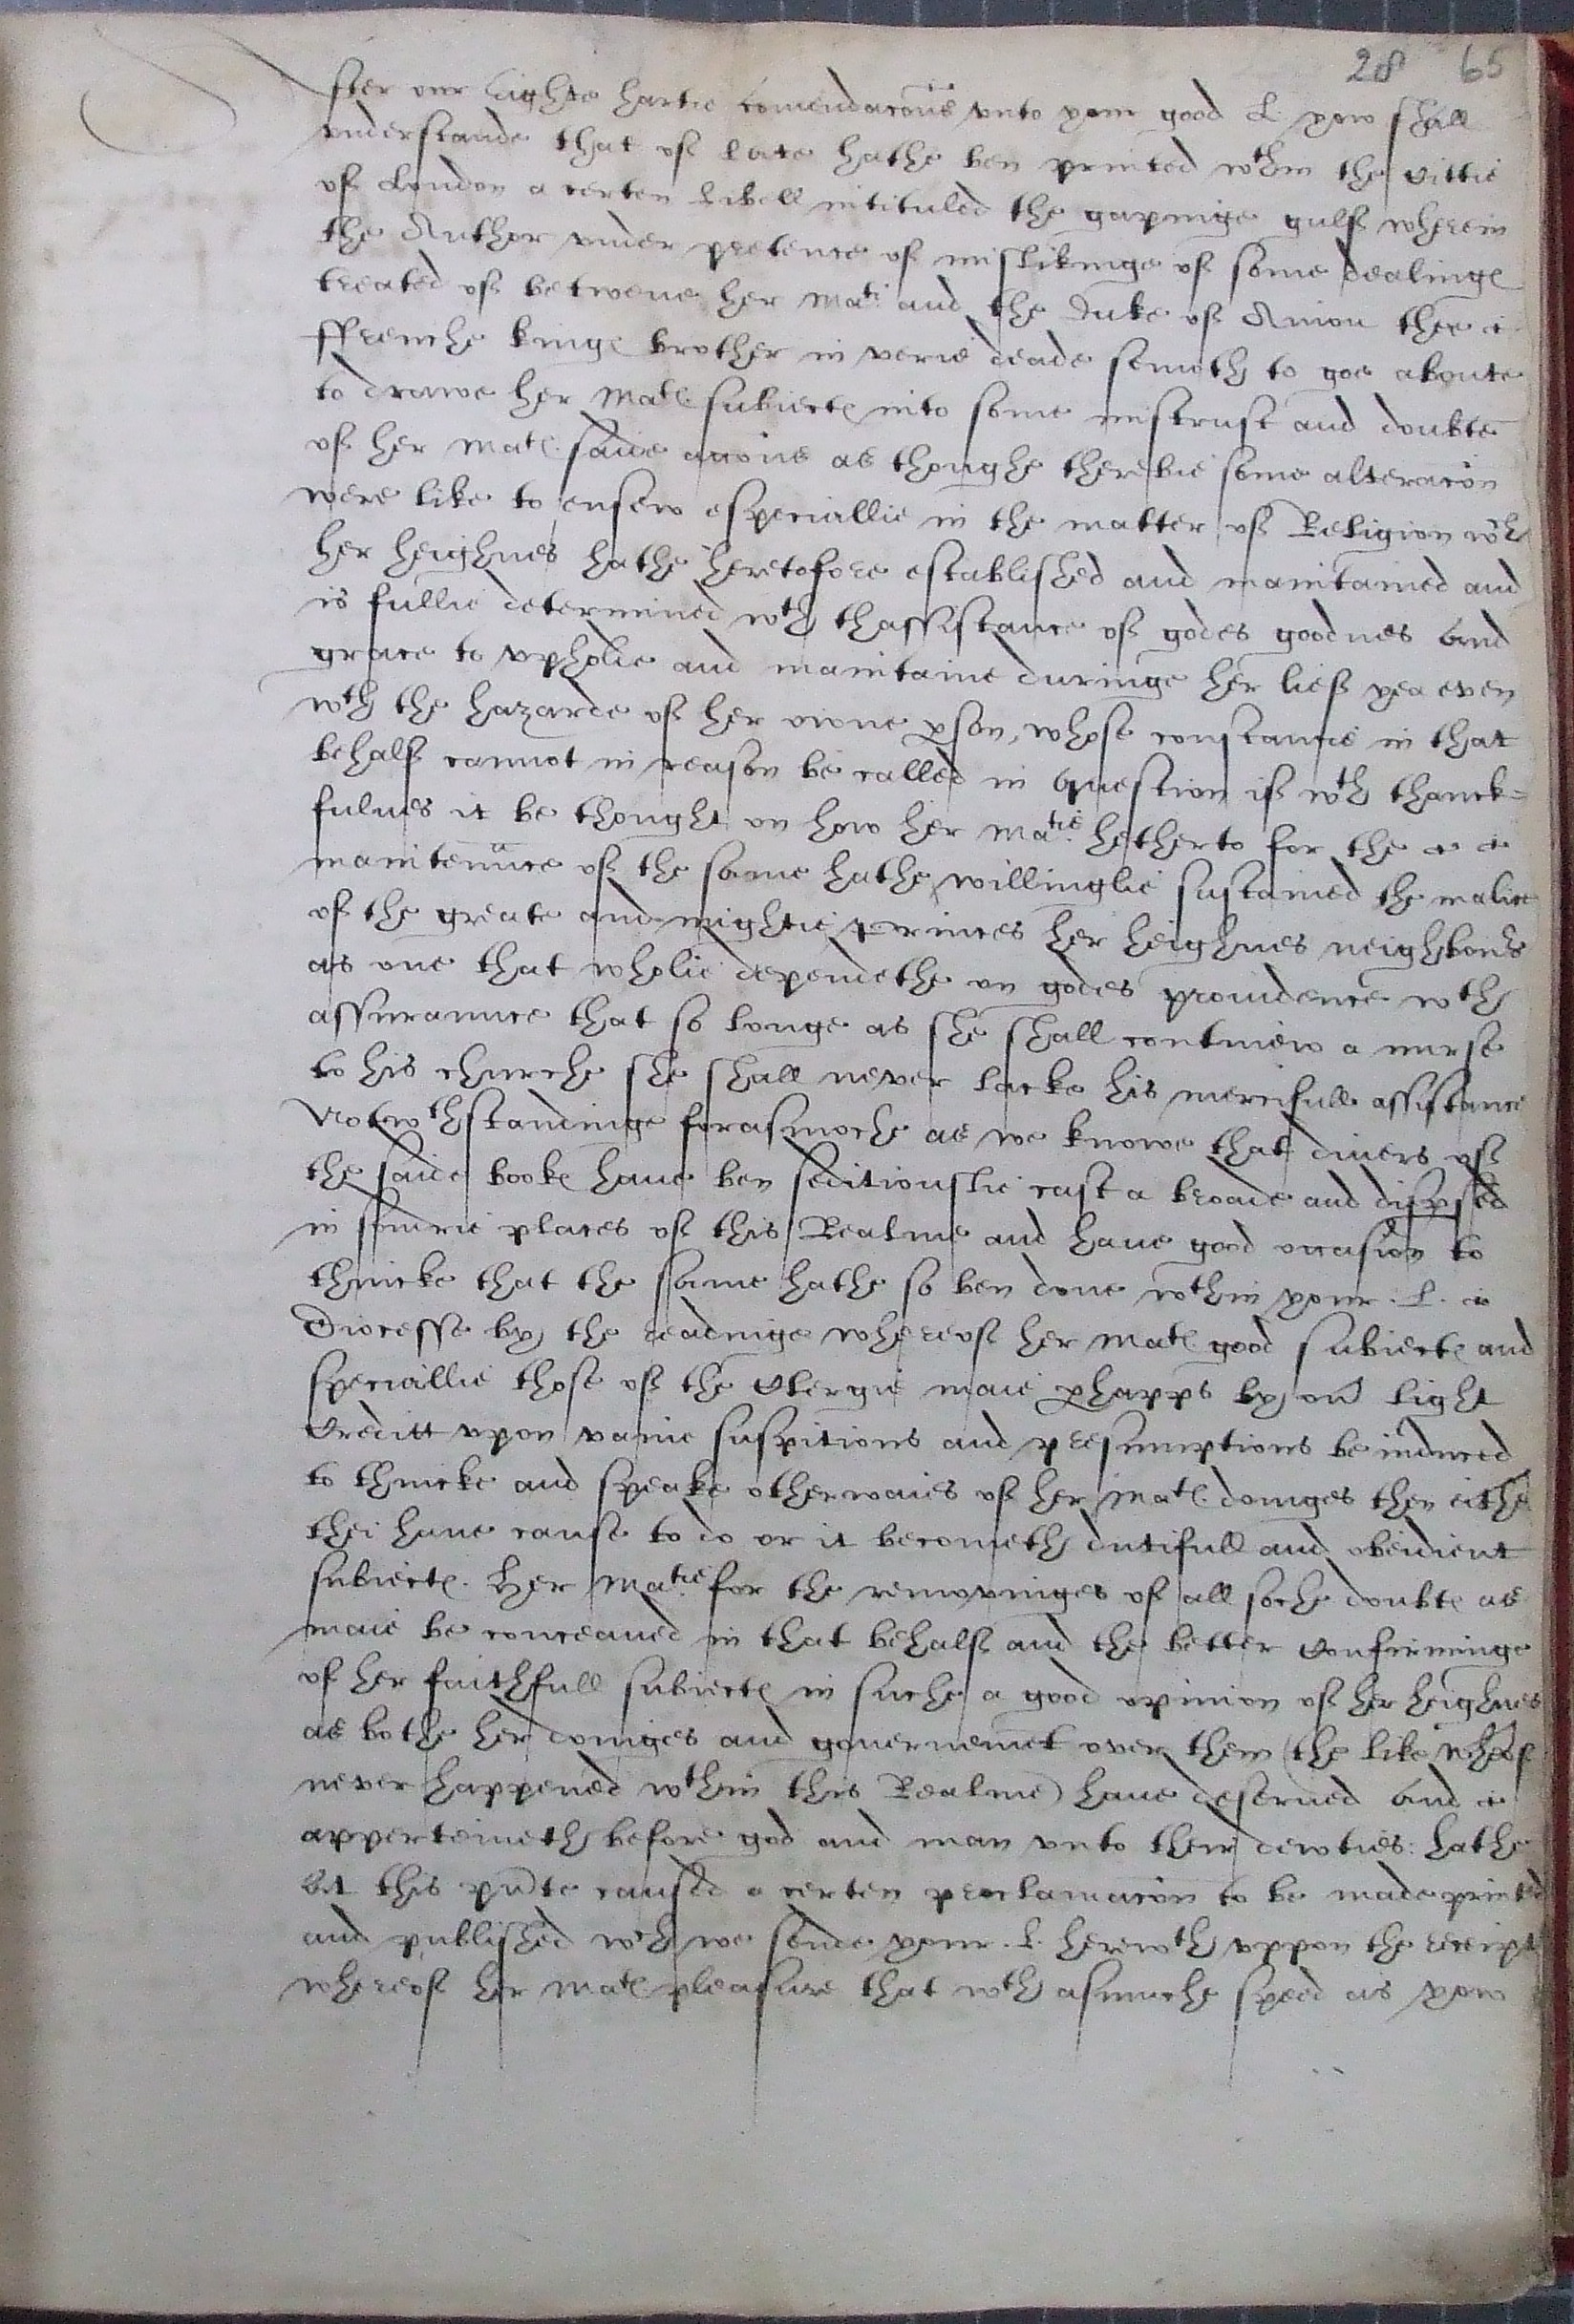 28 65
fter our righte hartie comendacons vnto your good L. yow shall
vnderstande that of late hathe ben printed wthin the Cittie
of London a certen libell intituled the gapinge gulf wherein
the Author vnder pretence of mislikinge of some dealinge
treated of betwene her Matie and the Duke of Aniou thee
ffrenche kinge brother in verie deade semeth to goe aboute
to drawe her Mate subiecte into some mistrust and doubte
of her Mate saide accons as thoughe therebie some alteracon
were like to ensew especiallie in the matter of Religion wch
her heighnes hathe heretofore established and maintained and
is fullie determined wth thassistance of godes goodnes and
grace to vpholde and maintaine duringe her lief yea even
wth the hazarde of her owne pson, whose constancie in that
behalf cannot in reason be called in question if wth thanck=
fulnes it be thought on how her Matie hetherto for the
maintenance of the same hathe willinglie sustained the malice
of the greate and mightie princes her heighnes neighbours
as one that wholie dependethe on godes providence wth
assurannce that so longe as she shall contniew a nurse
to his churche she shall never lacke his mercifull assistance
Notwthstandinge forasmoche as we knowe that divers of
the saide booke haue ben seditiouslie cast a broade and dispsed
in sundrie places of this Realme and haue good occasion to
thincke that the same hathe so ben done wthin your . L .
Diocesse by the readinge whereof her Mate good subiecte and
speciallie those of the Clergie maie phapps by our light
Creditt vpon vaine suspitions and presumptions be induced
to thincke and speake otherwaies of her Mate doinges then eithe
thei haue cause to do or it becometh dutifull and obeidient
subiecte. Her Matie for the removinges of all soche doubte as
maie be conceaued in that behalf and the better Confirminge
of her faithfull subiecte in suche a good opinion of her heighnes
as bothe her doinges and gouernemet over them (the like wherof
never happened wthin this Realme) haue deserued and
apperteineth before god and man vnto their dewties: hathe
at this pnte caused a certen proclamacon to be made printed
and published wch we sende your . L. herewth vppon the receipt
whereof her Mate pleasure that wth asmuche speed as yow